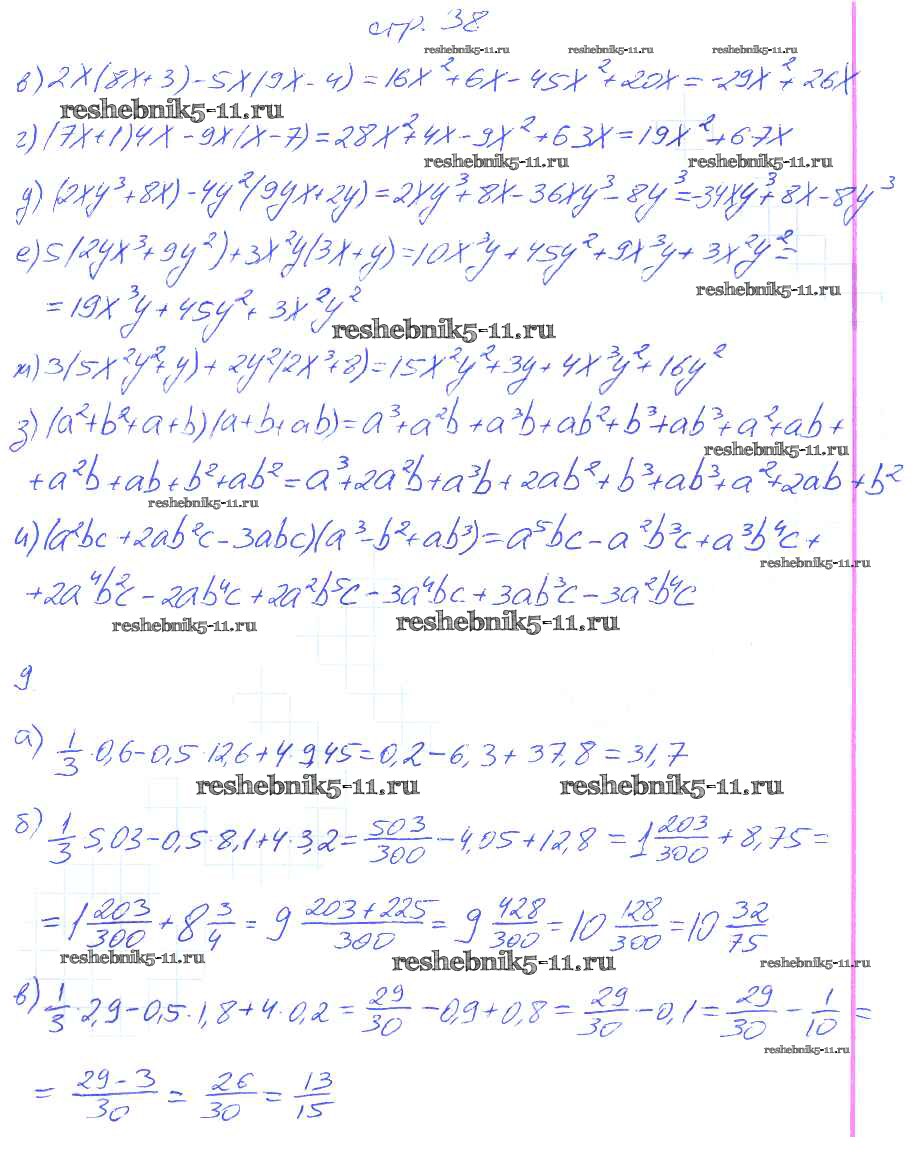 стр. 38
reshebnik5-11.ru reshebnik5-11.ru reshebnik5-11.ru
в) 2x(8x+3)-5x(9x-4)=16x²+6x-45x²+20x=-29x²+26x
reshebnik5-11.ru
г) (7x+1)4x-9x(x-7)=28x²+4x-9x²+63x=19x²+67x
reshebnik5-11.ru reshebnik5-11.ru
д) (2xy³+8x)-4y²(9yx+2y)=2xy³+8x-36xy³-8y³=-34xy³+8x-8y³
е) 5(2yx³+9y²)+3x²y(3x+y)=10x³y+45y²+9x³y+3x²y²=
reshebnik5-11.ru
=19x³y+45y²+3x²y²
reshebnik5-11.ru
ж) 3(5x²y²+y)+2y²(2x³+8)=15x²y²+3y+4x³y²+16y²
з) (a²+b²+a+b)(a+b+ab)=a³+a²b+a³b+ab²+b³+ab³+a²+ab+
reshebnik5-11.ru
+a²b+ab+b²+ab²=a³+2a²b+a³b+2ab²+b³+ab³+a²+2ab+b²
reshebnik5-11.ru
и) (a²bc+2ab²c-3abc)(a³-b²+ab³)=a⁵bc-a²b³c+a³b⁴c+
reshebnik5-11.ru
+2a⁴b²c-2ab⁴c+2a²b⁵c-3a⁴bc+3ab³c-3a²b⁴c
reshebnik5-11.ru reshebnik5-11.ru
9
а) 1/3·0,6-0,5·12,6+4·9,45=0,2-6,3+37,8=31,7
reshebnik5-11.ru reshebnik5-11.ru
б) 1/3·5,03-0,5·8,1+4·3,2=503/300-4,05+12,8=1 203/300+8,75=
=1 203/300+8 3/4=9 (203+225)/300=9 428/300=10 128/300=10 32/75
reshebnik5-11.ru reshebnik5-11.ru reshebnik5-11.ru
в) 1/3·2,9-0,5·1,8+4·0,2=29/30-0,9+0,8=29/30-0,1=29/30-1/10=
reshebnik5-11.ru
=(29-3)/30=26/30=13/15